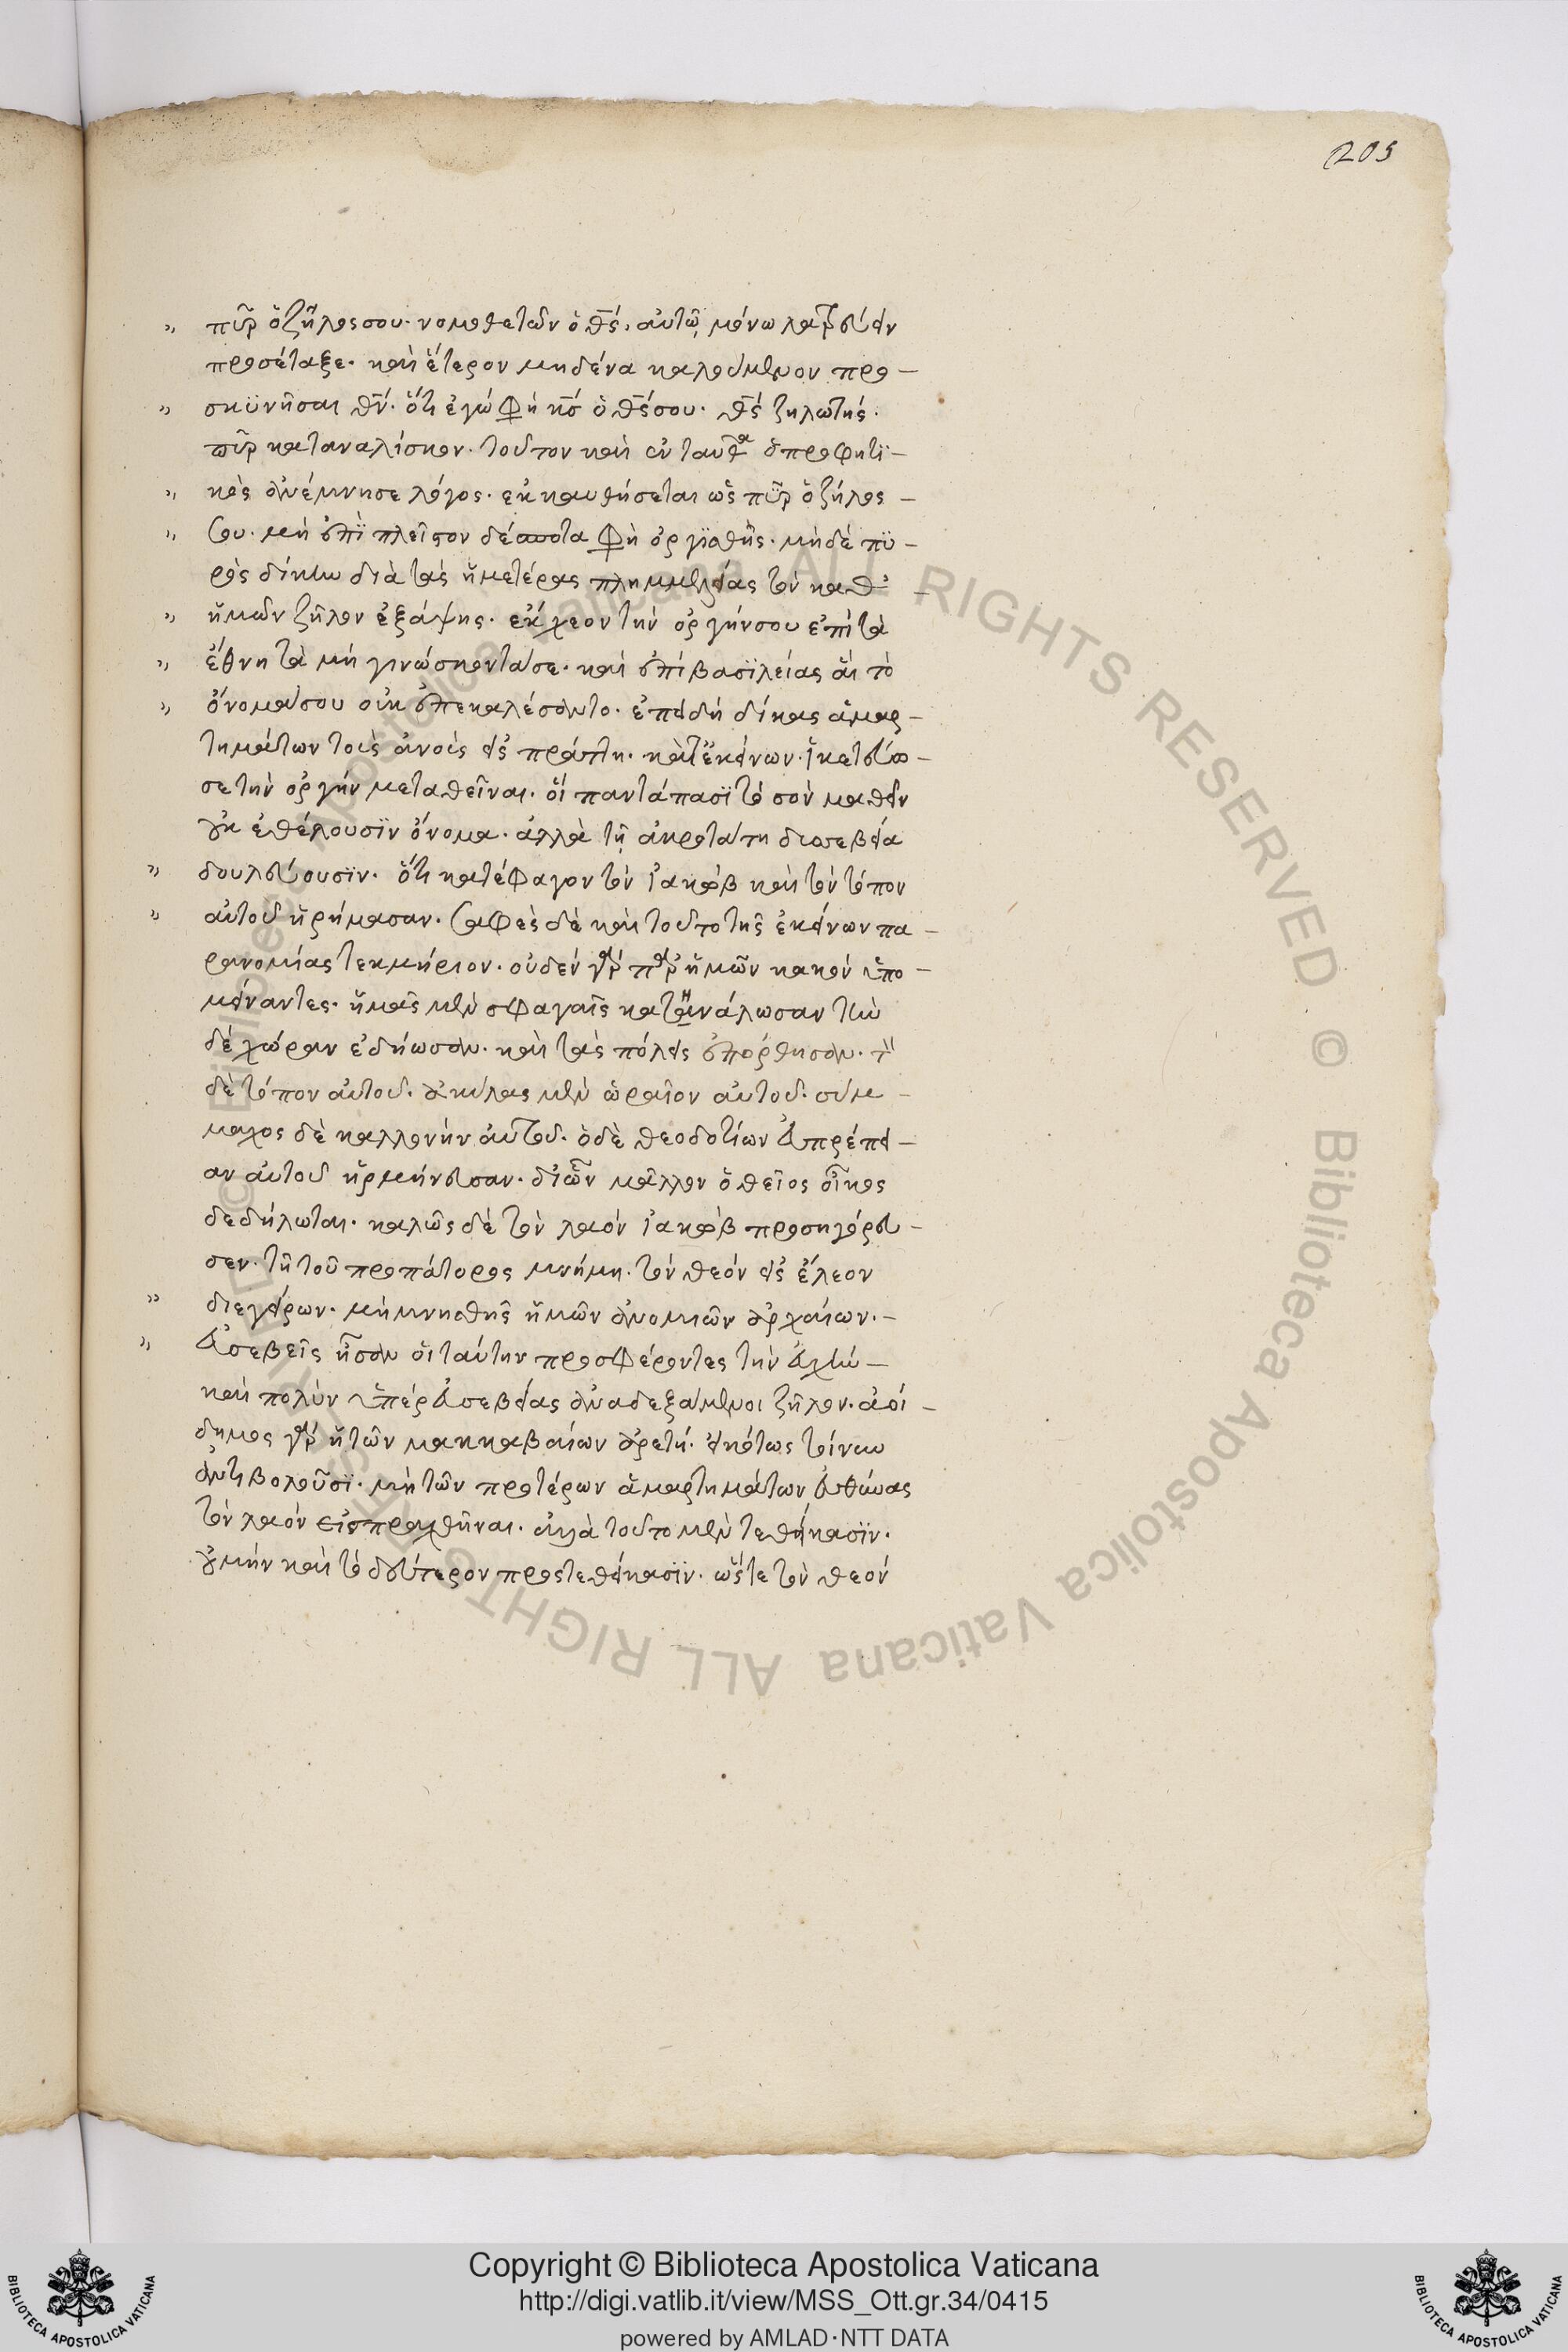 205
" πῦρ ὁ ζῆλος σου· νομοθετῶν ὁ θς, αὐτῷ μόνω λατρεύειν
προσέταξε· καὶ ἕτερον μηδένα καλούμενον προ-
" σκϋνῆσαι θν· ὅτι ἐγώ εἰμι κς ὁ θς σου· θς ζηλωτής·
πῦρ καταναλίσκον· τοῦτον καὶ ἐνταῦθα ὁ προφητϊ-
" κὸς ἀνέμνησε λόγος· ἐκκαυθήσεται ὡς πῦρ ὁ ζῆλος -
" σου· μὴ ἐπῒ πλεῖστον δέσποτα φὴ ὀργϊσθῇς· μὴ δὲ πϋ-
ρὸς δίκην διὰ τὰς ἡμετέρας πλημμελείας τὸν καθ' -
" ἡμῶν ζῆλον ἐξάψης· ἔκχεον τὴν ὀργήν σου ἐπὶ τὰ
" ἔθνη τὰ μὴ γινώσκοντά σε· καὶ ἐπὶ βασϊλείας αἳ τὸ
" ὄνομά σου οὐκ ἐπεκαλέσαντο· ἐπειδὴ δίκας ἁμαρ-
τημάτων τοὺς ἀνούς εἰσπράττη· κατ' ἐκείνων ἱκετεύο-
σε τὴν ὀργὴν μεταθεῖναι· οἳ παντάπασϊ τὸ σὸν μαθεῖν
οὐκ ἐθέλουσϊν ὄνομα· ἀλλὰ τῇ ἀκροτάτη δυσσεβεία
" δουλεύουσϊν· ὅτι κατέφαγον τὸν ἰακὼβ καὶ τὸν τόπον
" αὐτοῦ ἠρήμωσαν· σαφὲς δὲ καὶ τοῦτο τῆς ἐκείνων πα-
ρανομίας τεκμήριον· οὐδὲν γὰρ παρ' ἡμῶν κακὸν ὑπο-
μείναντες· ἡμᾶς μὲν σφαγαῖς κατηνάλωσαν τὴν
δὲ χώραν ἐδήωσαν· καὶ τὰς πόλεις ἐπόρθησαν· τὸν
δὲ τόπον αὐτοῦ· ἀκύλας μὲν ὡραῖον αὐτοῦ· σύμ-
μαχος δὲ καλλονὴν αὐτοῦ· ὁ δὲ θεοδοτίων εὐπρέπει-
αν αὐτοῦ ἡρμήνευσαν· δι' ὧν μᾶλλον ὁ θεῖος οἶκος
δεδήλωται· καλῶς δὲ τὸν λαὸν ἰακὼβ προσηγόρευ-
σεν· τῇ τοῦ προπάτορος μνήμη· τὸν θεὸν εἰς ἔλεον
" διεγείρων· μὴ μνησθῇς ἡμῶν ἀνομιῶν ἀρχαίων·-
" εὐσεβεῖς ἦσαν οἱ ταύτην προσφέροντες τὴν εὐχὴν-
καὶ πολὺν ὑπὲρ εὐσεβείας ἀναδεξάμενοι ζῆλον· ἀοί-
δημος γὰρ ἡ τῶν μακκαβαίων ἀρετή· εἰκότως τοίνυν
ἀντιβολοῦσϊ· μὴ τῶν προτέρων ἁμαρτημάτων εὐθύνας
τὸν λαὸν εἰσπραχθῆναι· ἀλλὰ τοῦτο μὲν τεθείκασϊν·
οὐ μὴν καὶ τὸ δεύτερον προστεθείκασϊν· ὥστε τὸν θεὸν
BIBLIOTECA APOSTOLICA VATICANA
Copyright © Biblioteca Apostolica Vaticana
http://digi.vatlib.it/view/MSS_Ott.gr.34/0415
powered by AMLAD·NTT DATA
BIBLIOTECA APOSTOLICA VATICANA
© Biblioteca Apostolica Vaticana ALL RIGHTS RESERVED © Biblioteca Apostolica Vaticana ALL RIGHTS RESERVED